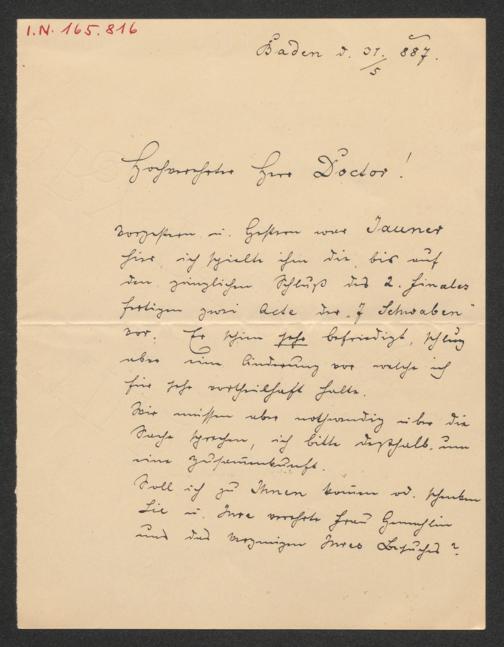 I.N. 165.816
Baden d. 31/5 887.
Hochverehrter Herr Doctor!
Vorgestern u. Gestern war Jauner
hier, ich spielte ihm die bis auf
den gänzlichen Schluß des 2. Finales
fertigen zwei Acte der „7 Schwaben"
vor. Er schien sehr befriedigt, schlug
aber eine Änderung vor welche ich
für sehr vortheilhaft halte.
Wir müssen aber nothwendig über die
Sache sprechen, ich bitte deßhalb um
eine Zusammenkunft.
Soll ich zu Ihnen kommen od. schenken
Sie u. Ihre verehrte Frau Gemahlin
uns das Vergnügen Ihres Besuches?